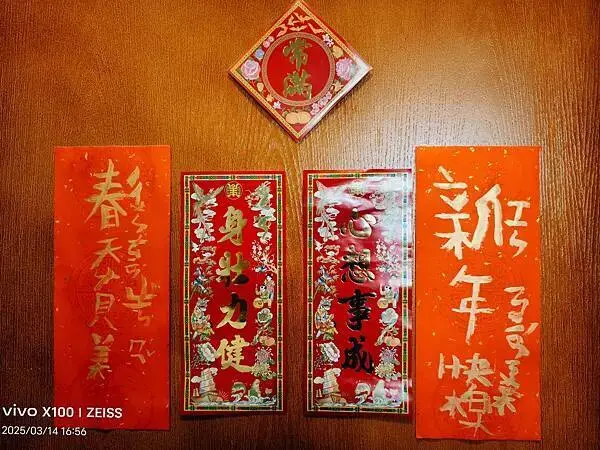 常滿
新年快樂
心想事成
身壯力健
春天真美
vivo X100 | ZEISS
2025/03/14 16:56